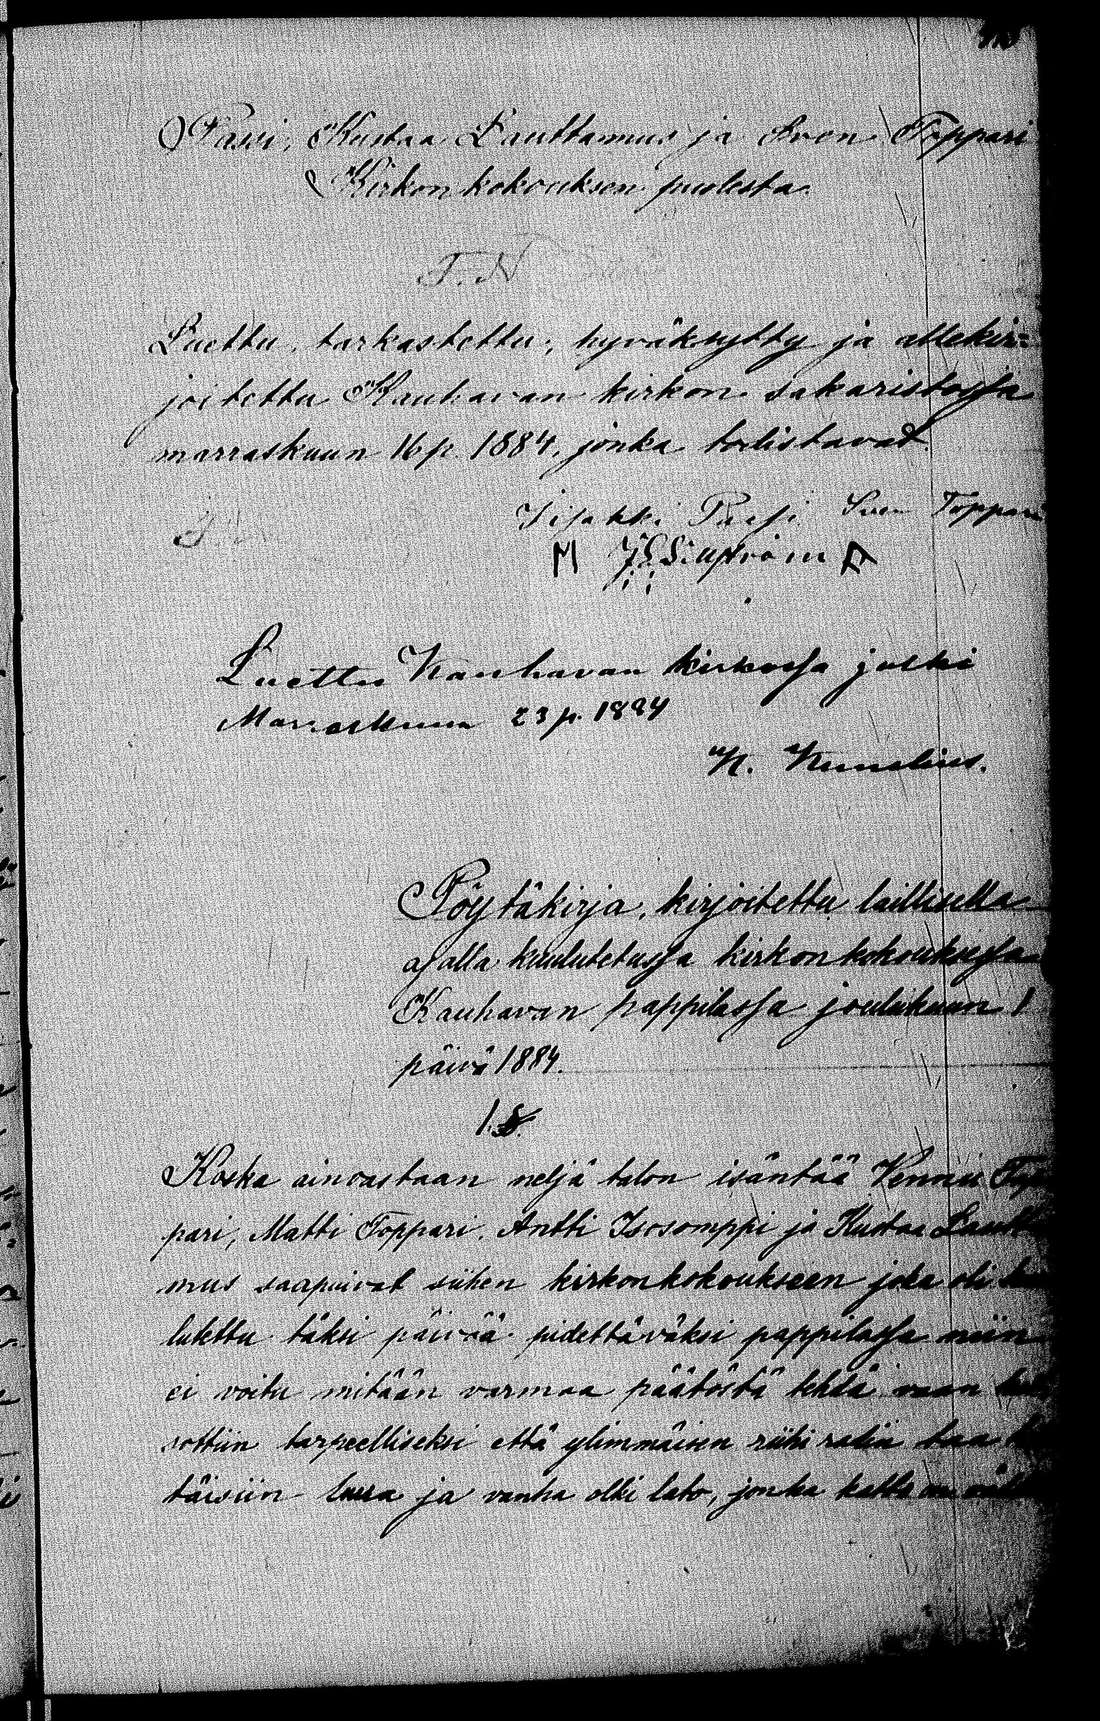 Passi, Kustaa Lauttamus ja Sven Toppari
Kirkonkokouksen puolesta.
T. N
Luettu, tarkastettu, hyväksytty ja allekir=
joitettu Kauhavan kirkon sakaristossa
marraskuun 16 p. 1884, jonka todistavat.
Iisakki Passi Sven Toppari
Luettu Kauhavan kirkossa julki
Marraskuun 23 p. 1884
K. Kunelius.
Pöytäkirja, kirjoitettu laillisella
ajalla kuulutetussa kirkonkokouksessa
Kauhavan pappilassa joulukuun 1
päivä 1884.
1. §.
Koska ainoastaan neljä talon isäntää
pari, Matti Toppari, Antti Isosomppi ja Kustaa Lautta
mus saapuivat siihen kirkonkokoukseen joka oli
lutettu täksi päivää pidettäväksi pappilassa niin
ei voitu mitään varmaa päätöstä tehdä vaan
sottiin tarpeelliseksi että ylimmäisen riihi
täisiin ja vanha olki lato, jonka katto on